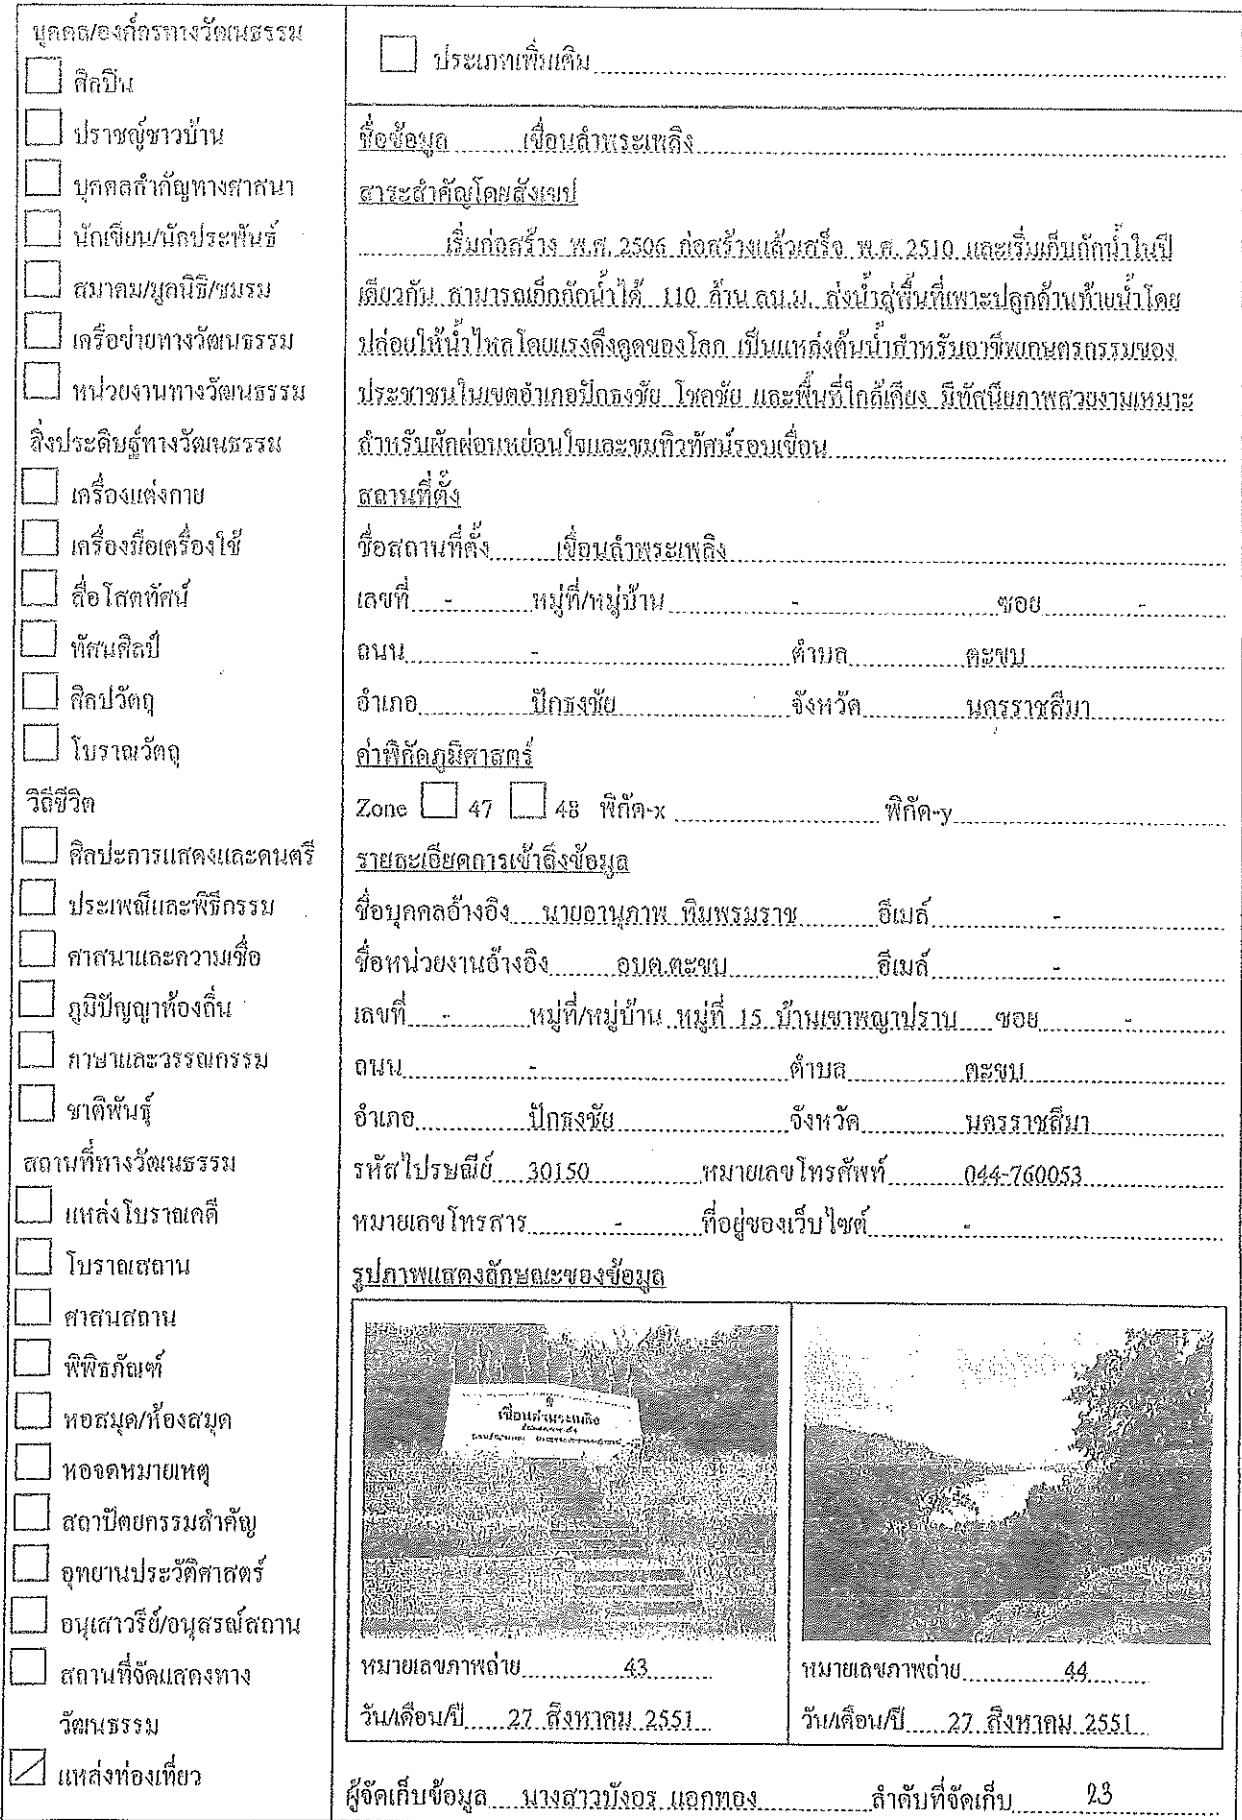 บุคคล/องค์กรทางวัฒนธรรม
ศิลปิน
ปราชญ์ชาวบ้าน
บุคคลสำคัญทางศาสนา
นักเขียน/นักประพันธ์
สมาคม/มูลนิธิ/ชมรม
เครือข่ายทางวัฒนธรรม
หน่วยงานทางวัฒนธรรม
สิ่งประดิษฐ์ทางวัฒนธรรม
เครื่องแต่งกาย
เครื่องมือเครื่องใช้
สื่อโสตทัศน์
ทัศนศิลป์
ศิลปวัตถุ
โบราณวัตถุ
วิถีชีวิต
ศิลปะการแสดงและดนตรี
ประเพณีและพิธีกรรม
ศาสนาและความเชื่อ
ภูมิปัญญาท้องถิ่น
ภาษาและวรรณกรรม
ชาติพันธุ์
สถานที่ทางวัฒนธรรม
แหล่งโบราณคดี
โบราณสถาน
ศาสนสถาน
พิพิธภัณฑ์
หอสมุด/ห้องสมุด
หอจดหมายเหตุ
สถาปัตยกรรมสำคัญ
อุทยานประวัติศาสตร์
อนุเสาวรีย์/อนุสรณ์สถาน
สถานที่จัดแสดงทาง
วัฒนธรรม
แหล่งท่องเที่ยว
ประเภทเพิ่มเติม
ชื่อข้อมูล เขื่อนลำพระเพลิง
สาระสำคัญโดยสังเขป
เริ่มก่อสร้าง พ.ศ. 2506 ก่อสร้างแล้วเสร็จ พ.ศ. 2510 และเริ่มเก็บกักน้ำในปี
เดียวกัน สามารถเก็กกักน้ำได้ 110 ล้าน ลบ.ม. ส่งน้ำสู่พื้นที่เพาะปลูกด้านท้ายน้ำโดย
ปล่อยให้น้ำไหลโดยแรงดึงดูดของโลก เป็นแหล่งต้นน้ำสำหรับอาชีพเกษตรกรรมของ
ประชาชนในเขตอำเภอปักธงชัย โชคชัย และพื้นที่ใกล้เคียง มีทัศนียภาพสวยงามเหมาะ
สำหรับพักผ่อนหย่อนใจและชมทิวทัศน์รอบเขื่อน
สถานที่ตั้ง
ชื่อสถานที่ตั้ง เขื่อนลำพระเพลิง
เลขที่ - หมู่ที่/หมู่บ้าน - ซอย -
ถนน - ตำบล ตะขบ
อำเภอ ปักธงชัย จังหวัด นครราชสีมา
ค่าพิกัดภูมิศาสตร์
Zone 47 48 พิกัด-x พิกัด-y
รายละเอียดการเข้าถึงข้อมูล
ชื่อบุคคลอ้างอิง นายอานุภาพ ทิมพรมราช อีเมล์ -
ชื่อหน่วยงานอ้างอิง อบต.ตะขบ อีเมล์ -
เลขที่ - หมู่ที่/หมู่บ้าน หมู่ที่ 15 บ้านเขาพญาปราบ ซอย -
ถนน - ตำบล ตะขบ
อำเภอ ปักธงชัย จังหวัด นครราชสีมา
รหัสไปรษณีย์ 30150 หมายเลขโทรศัพท์ 044-760053
หมายเลขโทรสาร - ที่อยู่ของเว็บไซต์ -
รูปภาพแสดงลักษณะของข้อมูล
เขื่อนลำพระเพลิง
หมายเลขภาพถ่าย 43
วัน/เดือน/ปี 27 สิงหาคม 2551
หมายเลขภาพถ่าย 44
วัน/เดือน/ปี 27 สิงหาคม 2551
ผู้จัดเก็บข้อมูล นางสาวบังอร แอกทอง ลำดับที่จัดเก็บ 23